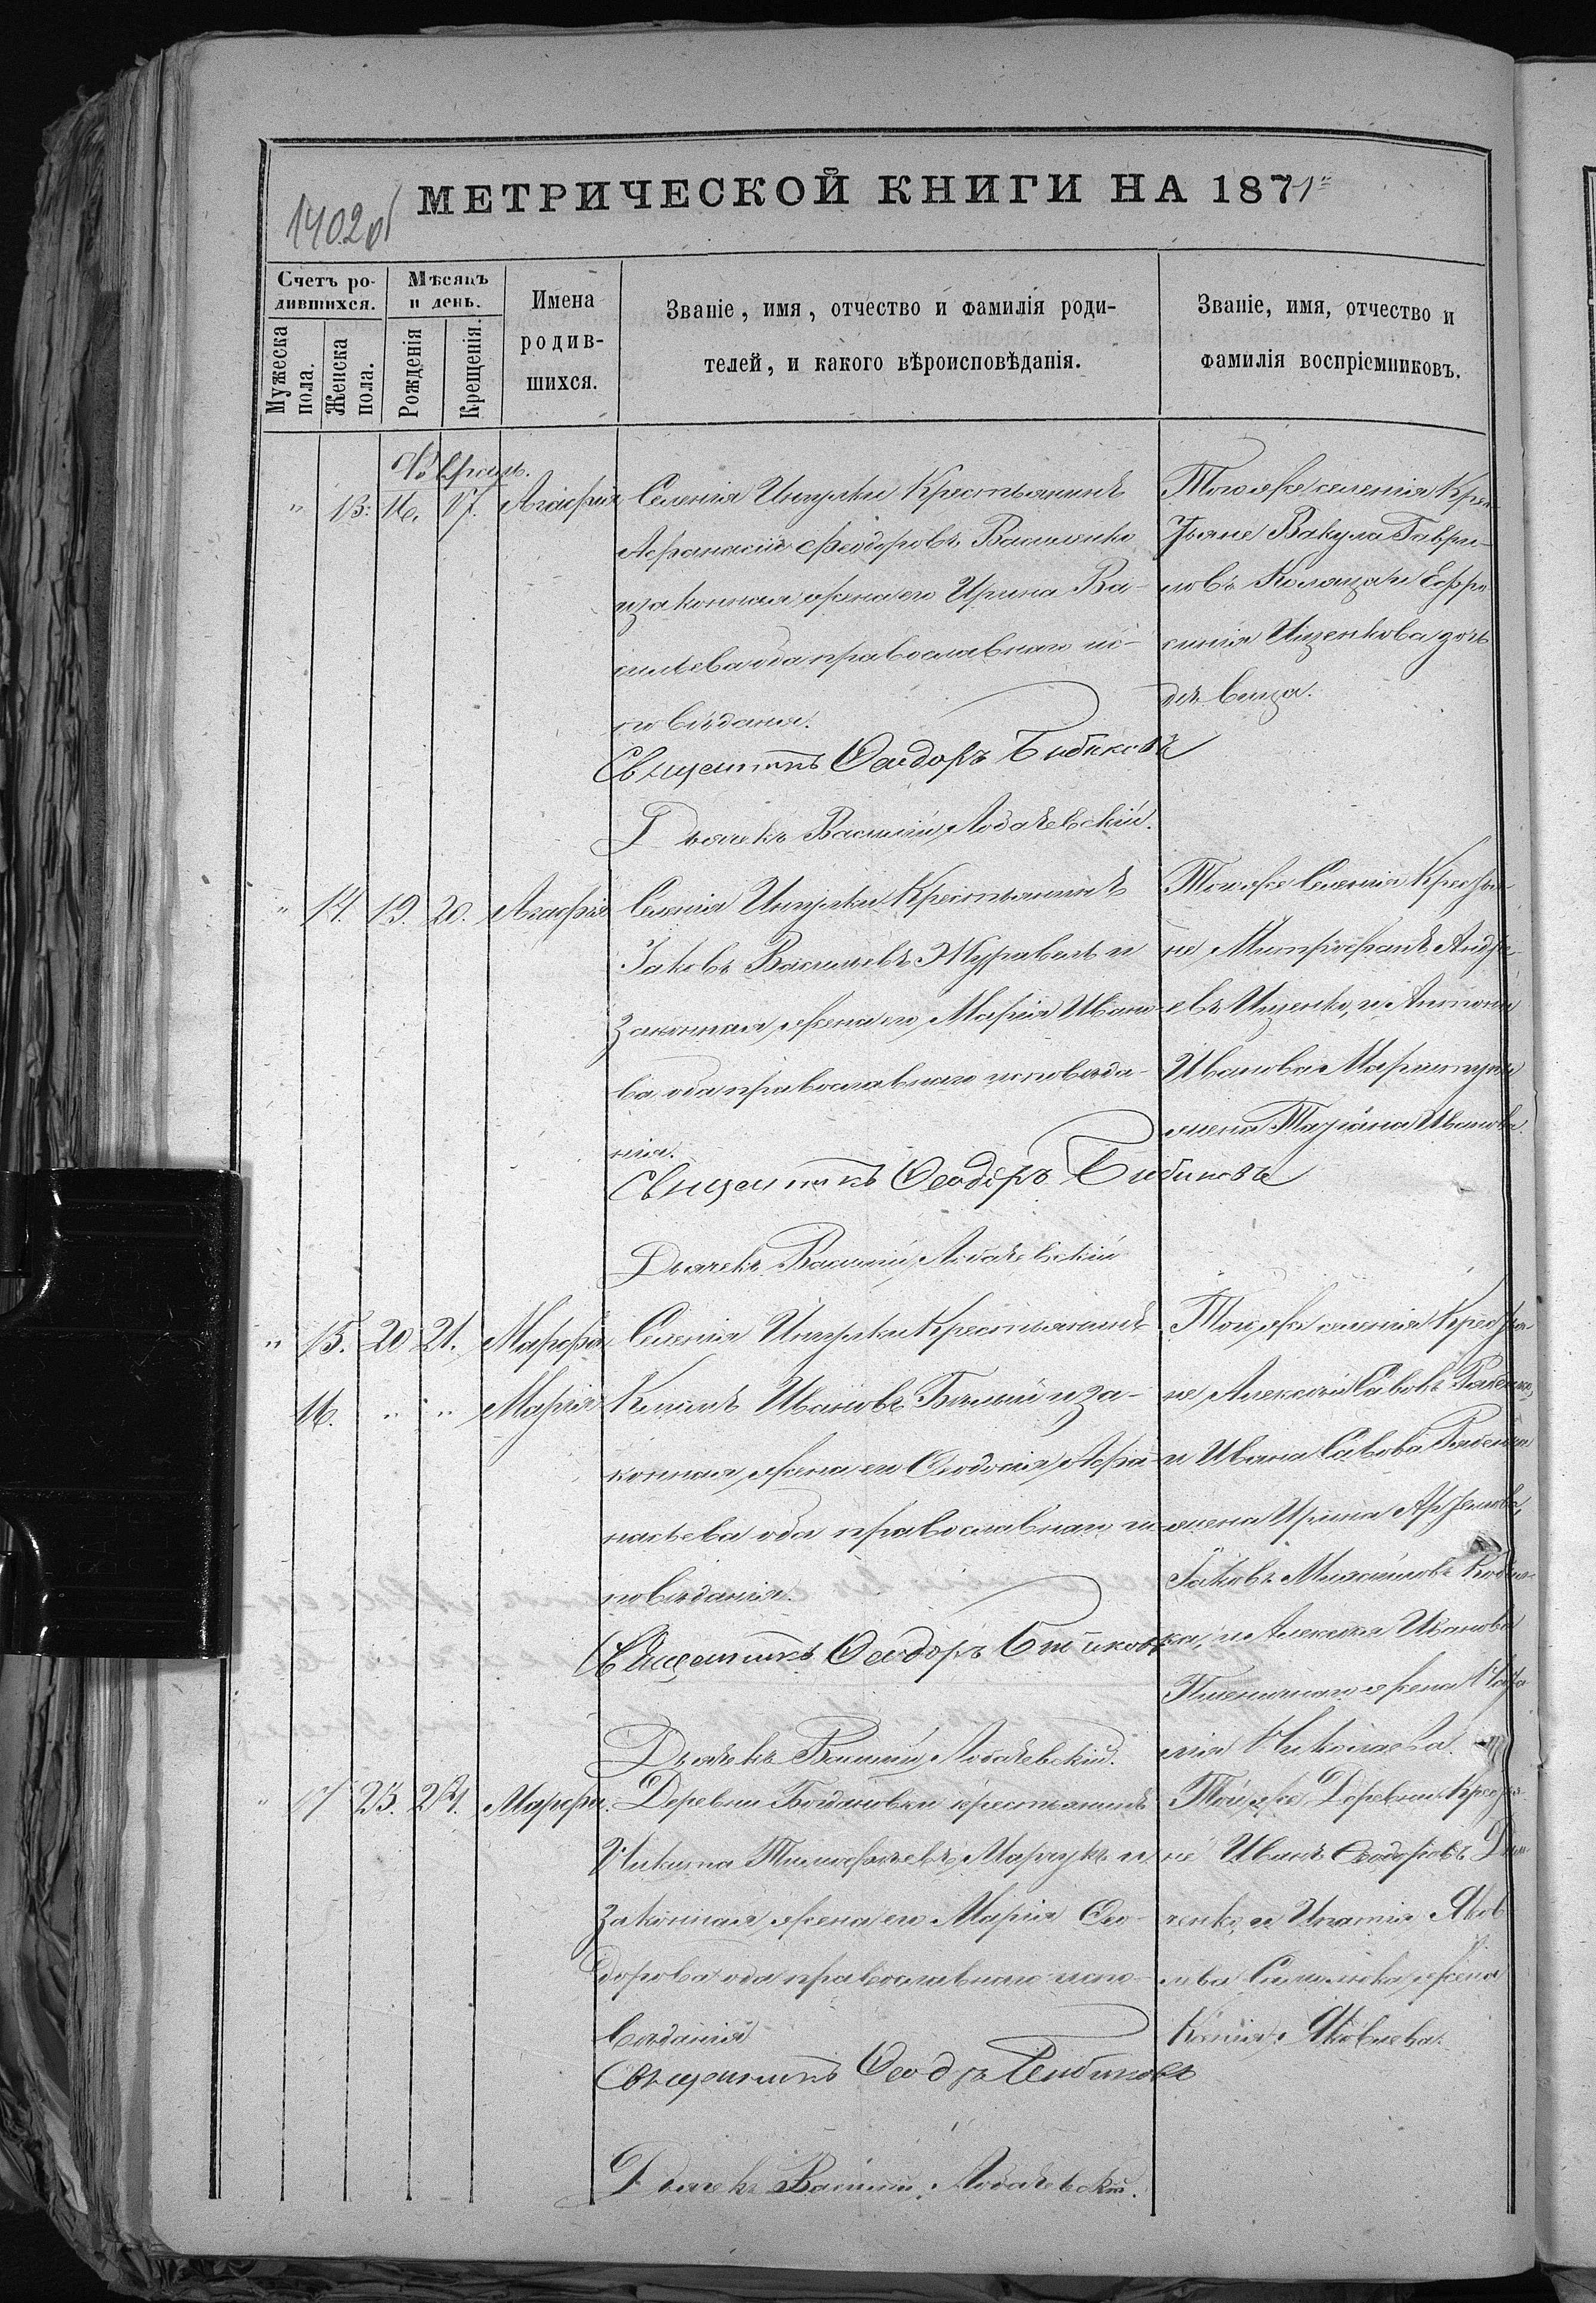 МЕТРИЧЕСКОЙ КНИГИ НА 1871
1402об
Счетъ родившихся.
Мѣсяцъ и день.
Имена родившихся.
Званіе, имя, отчество и фамилія родителей, и какого вѣроисповѣданія.
Званіе, имя, отчество и фамилія воспріемниковъ.
Мужеска пола.
Женска пола.
Рожденія
Крещенія.
Февраль.
" 13. 16. 17. Агафія
Селенія Крестьянинъ
Афанасій Феодоровъ Василенко
и законная жена его Ирина Ва-
сильева оба православнаго ис-
повѣданія.
Священникъ Ѳеодоръ Бибиковъ
Дьячекъ Василій Лобачевскій.
Того же селенія Крес-
тьяне Вакула Гаври-
ловъ и Евфро-
синія Ищенкова дочь
дѣвица.
" 14. 19. 20. Агафія
Селенія Крестьянинъ
Іаковъ Васильевъ Журавель и
законная жена его Марія Ивано-
ва оба православнаго исповѣда-
нія.
Священникъ Ѳеодоръ Бибиковъ
Дьячекъ Василій Лобачевскій
Того же Селенія Крестья-
не Митрофанъ Андре-
евъ Ищенко, и
Иванова
жена Татіана Иванова.
" 15. 20 21. Марфа
16. " " Марія
Селенія Крестьянинъ
Ивановъ Бѣлый и за-
конная жена его Ѳеодосія Афа-
насьева оба православнаго ис-
повѣданія.
Священникъ Ѳеодоръ Бибиковъ
Дьячекъ Василій Лобачевскій.
Того же селенія Крестья-
не Алексѣй Савовъ
и Ивана Савова
жена Ирина
Іаковъ Михайловъ
и Алексѣя Иванова
жена
Николаева.
" 17 23. 24. Марфа.
Деревни Богдановки крестьянинъ
Никита Тимофеевъ и
законная жена его Марія Ѳео-
дорова оба православнаго испо-
вѣданія
Священникъ Ѳеодоръ Бибиковъ
Дьячекъ Василій Лобачевскій.
Той же Деревни Крестья-
не Иванъ Ѳеодоровъ
и Яков-
лева жена
Ксенія Яковлева.